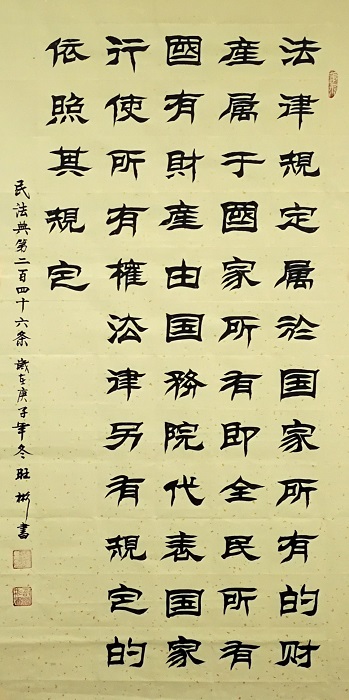 法律規定属於国家所有的财
産属于國家所有即全民所有
國有財產由国務院代表国家
行使所有權法律另有規定的
依照其規定
民法典第二百四十六条 歲在庚子年冬旺彬書